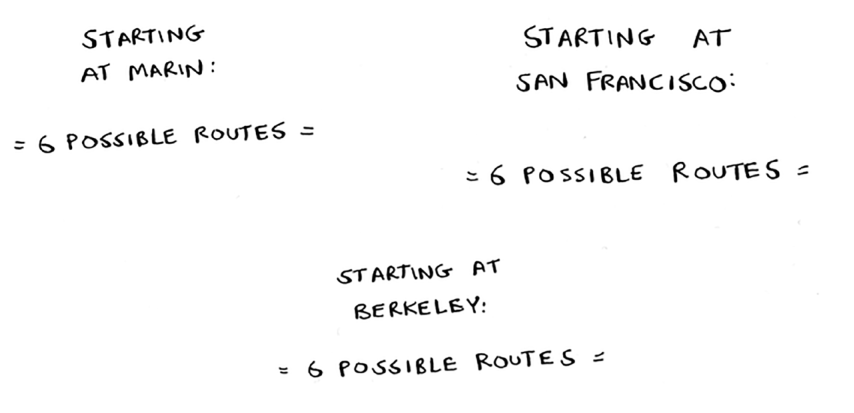 STARTING
AT MARIN:
= 6 POSSIBLE ROUTES =
STARTING AT
SAN FRANCISCO:
= 6 POSSIBLE ROUTES =
STARTING AT
BERKELEY:
= 6 POSSIBLE ROUTES =